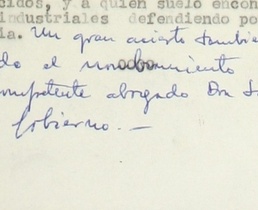 cidos, y a quien suelo encon
industriales defendiendo po
ia. Un gran acierto tambie
do el nombramiento
competente abogado Don
Gobierno.—